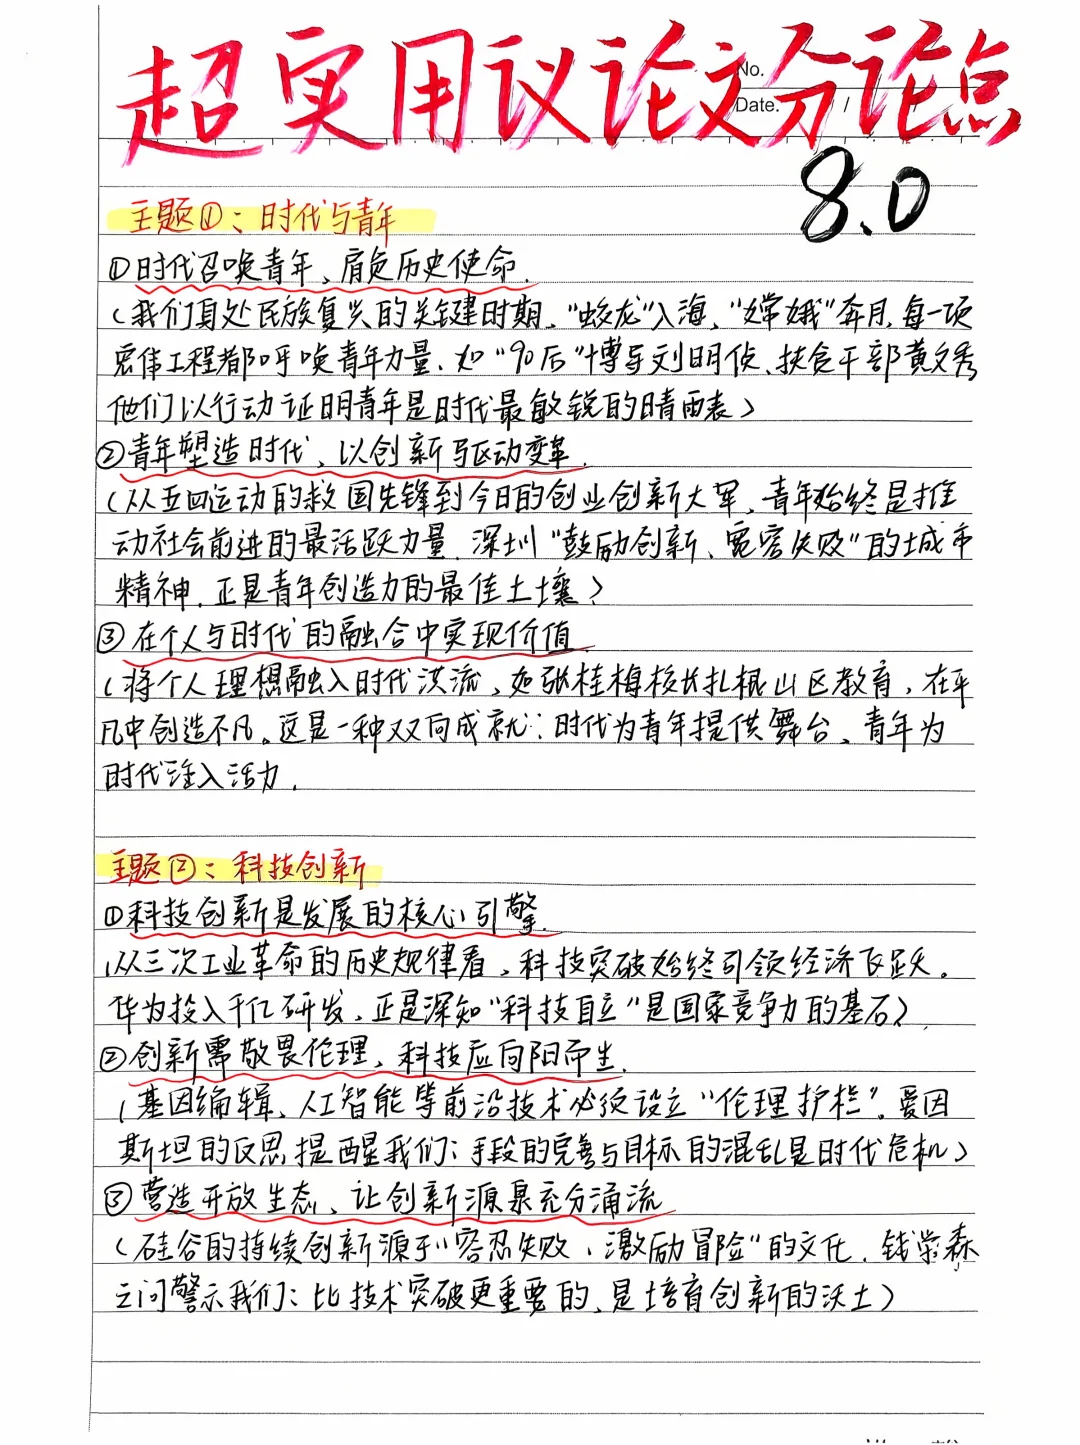 超实用议论文分论点
No.
Date. / /
8.0
主题①：时代与青年
①时代召唤青年、肩负历史使命.
(我们身处民族复兴的关键时期、“蛟龙”入海、“嫦娥”奔月.每一项
宏伟工程都呼唤青年力量、如“90后”博导刘明侦、扶贫干部黄文秀
他们以行动证明青年是时代最敏锐的晴雨表)
②青年塑造时代、以创新驱动变革.
(从五四运动的救国先锋到今日的创业创新大军、青年始终是推
动社会前进的最活跃力量.深圳“鼓励创新、宽容失败”的城市
精神.正是青年创造力的最佳土壤)
③在个人与时代的融合中实现价值.
(将个人理想融入时代洪流、如张桂梅校长扎根山区教育、在平
凡中创造不凡。这是一种双向成就：时代为青年提供舞台、青年为
时代注入活力.
主题②：科技创新
①科技创新是发展的核心引擎.
(从三次工业革命的历史规律看、科技突破始终引领经济飞跃。
华为投入千亿研发、正是深知“科技自立”是国家竞争力的基石)
②创新需敬畏伦理、科技应向阳而生.
(基因编辑、人工智能等前沿技术必须设立“伦理护栏”.爱因
斯坦的反思提醒我们：手段的完善与目标的混乱是时代危机)
③营造开放生态、让创新源泉充分涌流
(硅谷的持续创新源于“容忍失败、激励冒险”的文化.钱学森
之问警示我们：比技术突破更重要的、是培育创新的沃土)